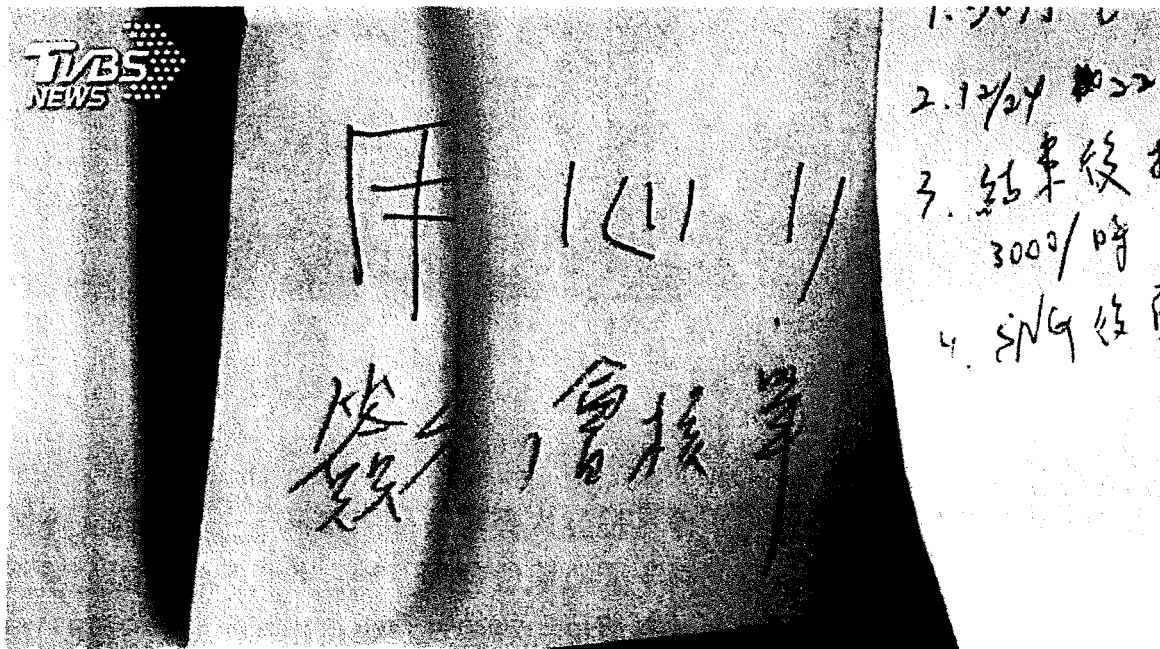 TVBS
NEWS
用心!!
簽,會核單
2.12/24 22
3. 結束後
3000/時
4. SNG後